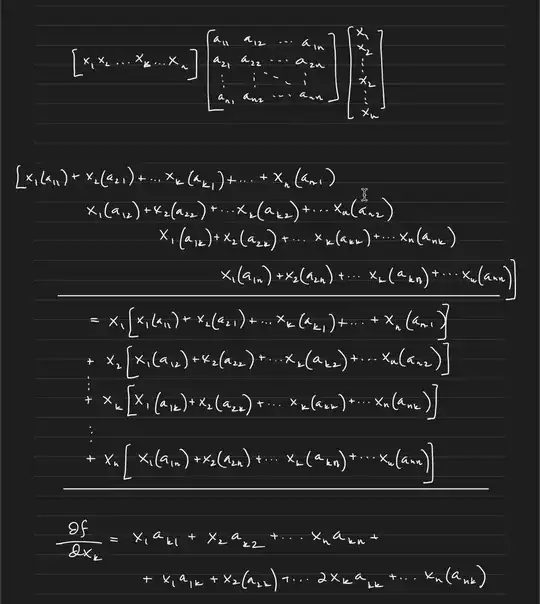 [x₁ x₂ ... x_k ... x_n] [a₁₁ a₁₂ ... a₁ₙ; a₂₁ a₂₂ ... a₂ₙ; ⋮ ⋮ ⋱ ⋮; aₙ₁ aₙ₂ ... aₙₙ] [x₁; x₂; ⋮; x₂; ⋮; xₙ]
[x₁(a₁₁) + x₂(a₂₁) + ... x_k(a_k1) + ... + xₙ(aₙ₁)
x₁(a₁₂) + x₂(a₂₂) + ... x_k(a_k2) + ... xₙ(aₙ₂)
x₁(a₁k) + x₂(a₂k) + ... x_k(a_kk) + ... xₙ(a_nk)
x₁(a₁ₙ) + x₂(a₂ₙ) + ... x_k(a_kn) + ... xₙ(aₙₙ)]
= x₁[x₁(a₁₁) + x₂(a₂₁) + ... x_k(a_k1) + ... + xₙ(aₙ₁)]
+ x₂[x₁(a₁₂) + x₂(a₂₂) + ... x_k(a_k2) + ... xₙ(aₙ₂)]
⋮
+ x_k[x₁(a₁k) + x₂(a₂k) + ... x_k(a_kk) + ... xₙ(a_nk)]
⋮
+ xₙ[x₁(a₁ₙ) + x₂(a₂ₙ) + ... x_k(a_kn) + ... xₙ(aₙₙ)]
∂f/∂x_k = x₁a_k1 + x₂a_k2 + ... xₙa_kn +
+ x₁a₁k + x₂(a₂k) + ... 2x_k a_kk + ... xₙ(a_nk)